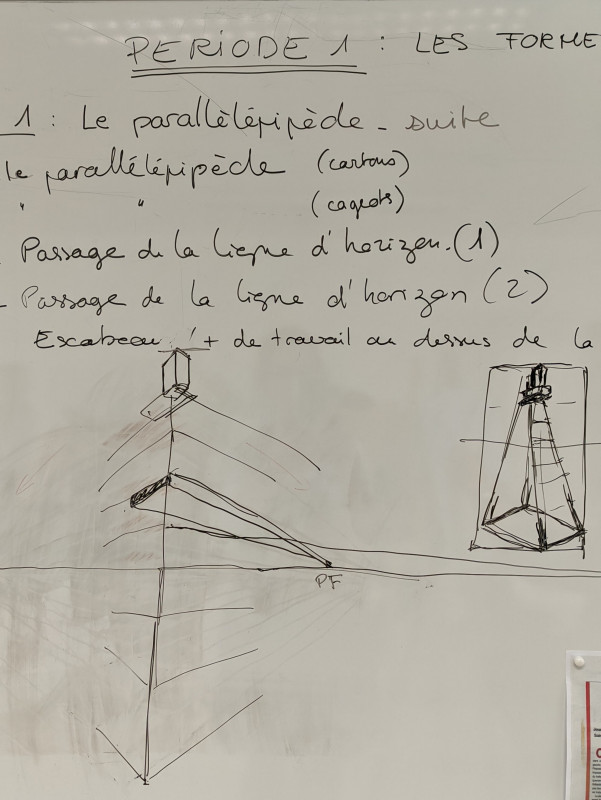 PERIODE 1 : LES FORME
1 : Le parallèlépipède - suite
le parallélépipède (cartons)
" " (cageots)
- Passage de la ligne d'horizon. (1)
- Passage de la ligne d'horizon (2)
Escabeau + de travail au dessus de la
PF